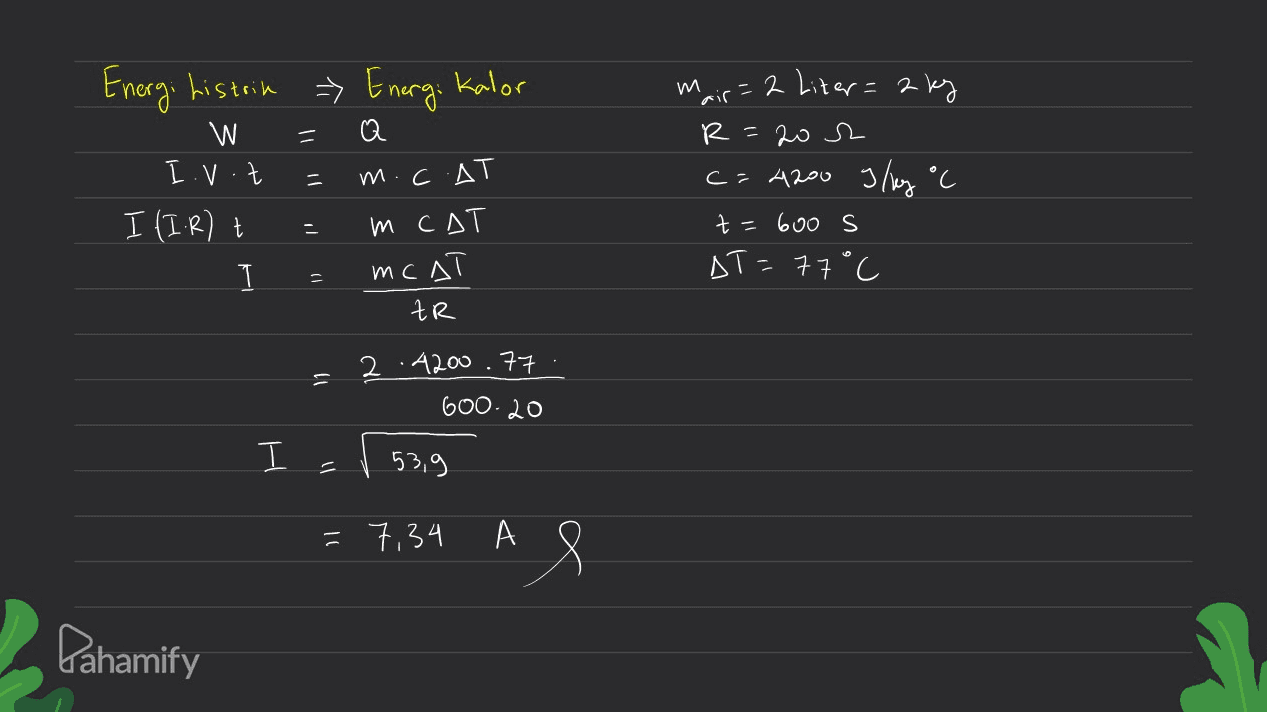 Energi Listrik ⇒ Energi Kalor
W = Q
I.V.t = m.c.ΔT
I (I.R) t = m c ΔT
I = m c ΔT / t R
= 2 . 4200 . 77 . / 600 . 20
I = √53,9
= 7,34 A
m air = 2 Liter = 2 kg
R = 20 Ω
c = 4200 J/kg °C
t = 600 s
ΔT = 77 °C
Pahamify